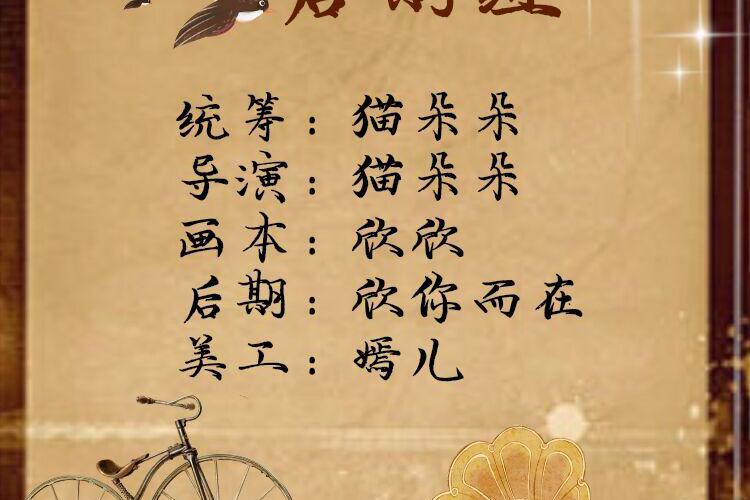 统筹：猫朵朵
导演：猫朵朵
画本：欣欣
后期：欣你而在
美工：嫣儿